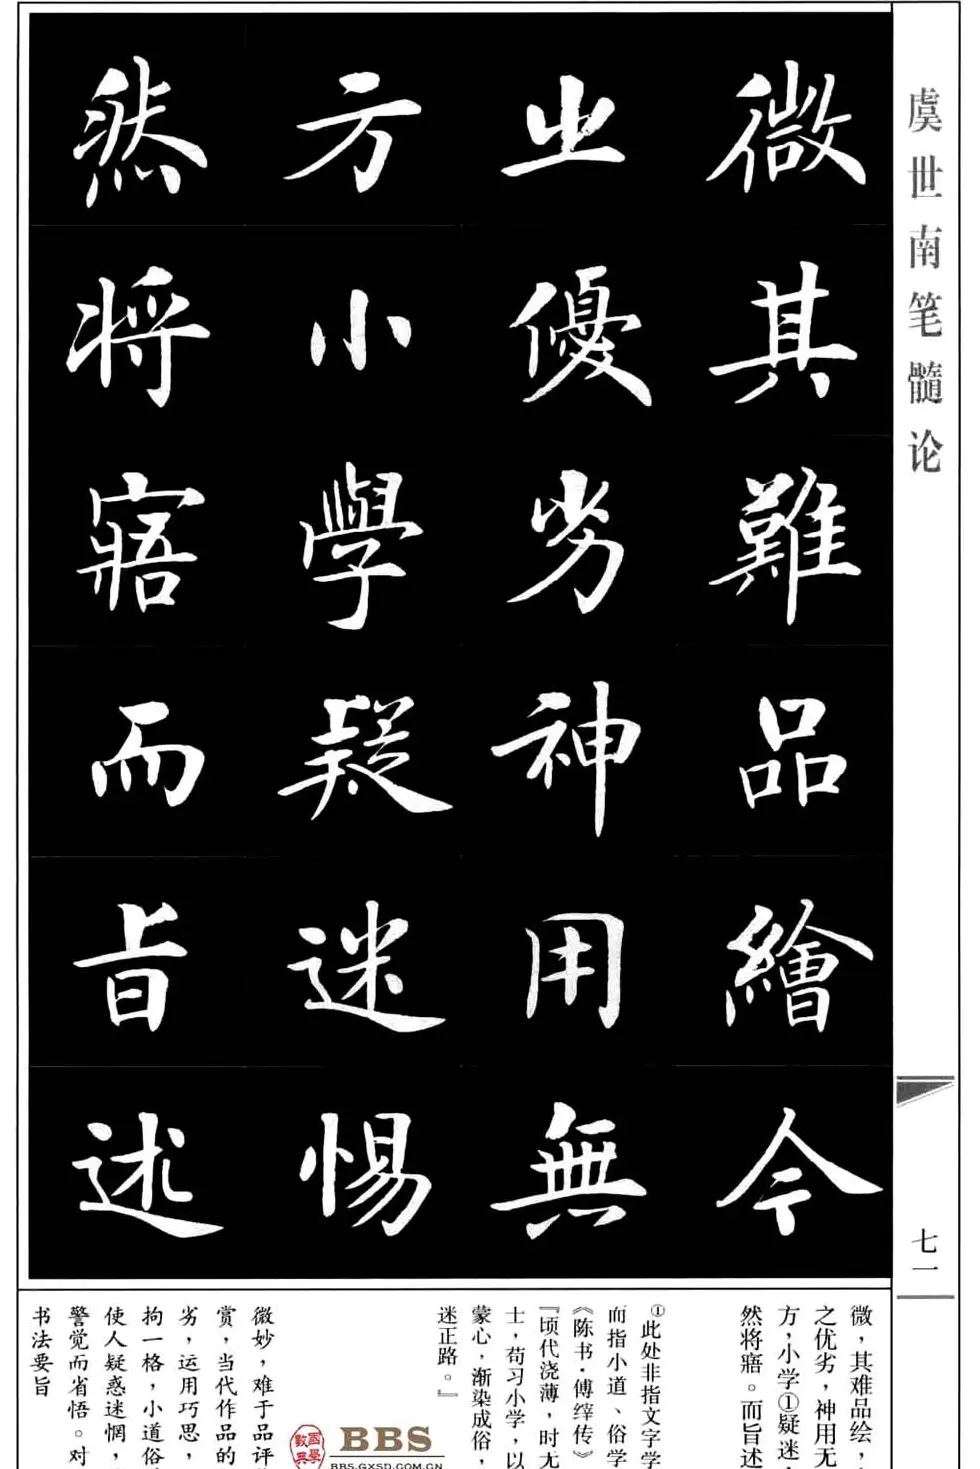 虞世南笔髓论
七一
微其難品繪今
之優劣神用無
方小學疑迷惕
然将寤而旨述
微，其难品绘，
之优劣，神用无
方，小学①疑迷，
然将寤。而旨述
①此处非指文字学
而指小道、俗学
《陈书·傅縡传》
『顷代浇薄，时无
士，苟习小学，以
蒙心，渐染成俗，
迷正路。』
微妙，难于品评
赏，当代作品的
劣，运用巧思，
拘一格，小道俗
使人疑惑迷惘，
警觉而省悟。对
书法要旨
國學數典
BBS
BBS.GXSD.COM.CN